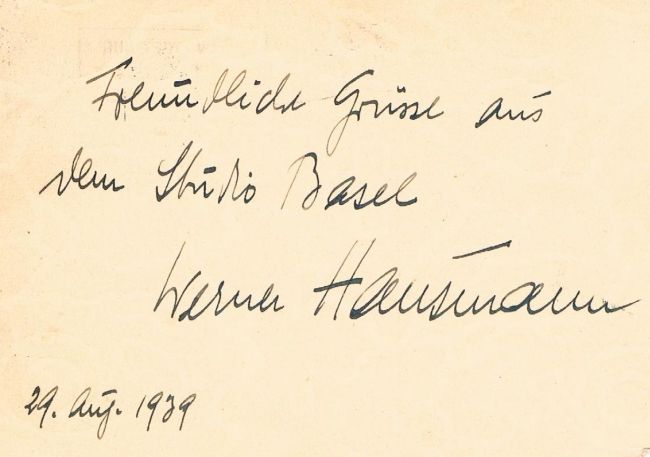 Freundliche Grüsse aus
dem Studio Basel
Werner Hausmann
29. Aug. 1939